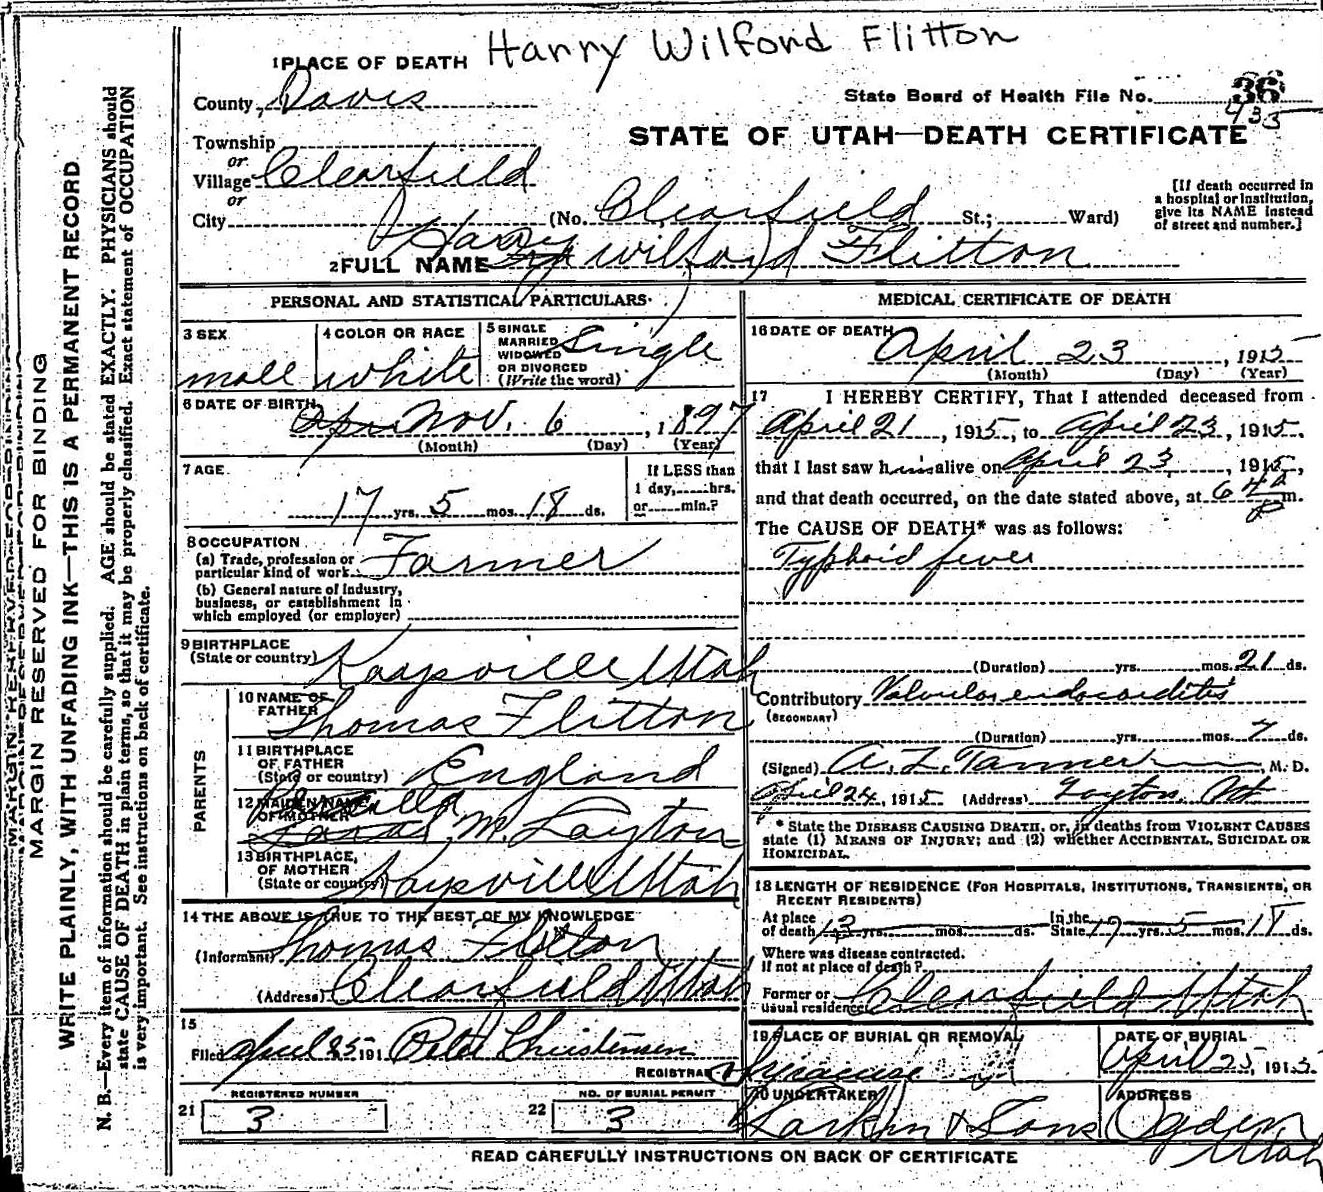 Harry Wilford Flitton
1 PLACE OF DEATH
County, Davis
State Board of Health File No. 36
433
STATE OF UTAH—DEATH CERTIFICATE
Township
or
Village Clearfield
or
City (No. Clearfield St.; Ward)
[If death occurred in
a hospital or institution,
give its NAME instead
of street and number.]
Harry
2 FULL NAME Wilford Flitton
PERSONAL AND STATISTICAL PARTICULARS
3 SEX
male
4 COLOR OR RACE
white
5 SINGLE
MARRIED
WIDOWED
OR DIVORCED
(Write the word)
Single
6 DATE OF BIRTH Nov. 6, 1897
(Month) (Day) (Year)
7 AGE
17 yrs. 5 mos. 18 ds.
If LESS than
1 day, hrs.
or min.?
8 OCCUPATION
(a) Trade, profession or
particular kind of work Farmer
(b) General nature of industry,
business, or establishment in
which employed (or employer)
9 BIRTHPLACE
(State or country) Kaysville Utah
PARENTS
10 NAME OF
FATHER Thomas Flitton
11 BIRTHPLACE
OF FATHER
(State or country) England
12 MAIDEN NAME
OF MOTHER
Sarah M. Layton
13 BIRTHPLACE,
OF MOTHER
(State or country) Kaysville Utah
14 THE ABOVE IS TRUE TO THE BEST OF MY KNOWLEDGE
(Informant) Thomas Flitton
(Address) Clearfield Utah
15
Filed April 25 191 Peter Christensen
REGISTRAR
REGISTERED NUMBER
21 3
NO. OF BURIAL PERMIT
22 3
MEDICAL CERTIFICATE OF DEATH
16 DATE OF DEATH
April 23, 1915
(Month) (Day) (Year)
17 I HEREBY CERTIFY, That I attended deceased from
April 21, 1915, to April 23, 1915,
that I last saw him alive on April 23, 1915,
and that death occurred, on the date stated above, at 6 m.
The CAUSE OF DEATH* was as follows:
Typhoid fever
(Duration) yrs. mos. 21 ds.
Contributory Valvular endocarditis
(SECONDARY)
(Duration) yrs. mos. 7 ds.
(Signed) A. L. Tanner, M. D.
April 24, 1915 (Address) Layton, Ut
* State the DISEASE CAUSING DEATH, or, in deaths from VIOLENT CAUSES
state (1) MEANS OF INJURY; and (2) whether ACCIDENTAL, SUICIDAL OR
HOMICIDAL.
18 LENGTH OF RESIDENCE (FOR HOSPITALS, INSTITUTIONS, TRANSIENTS, OR
RECENT RESIDENTS)
At place
of death 13 yrs. mos. ds.
In the
State 17 yrs. 5 mos. 18 ds.
Where was disease contracted.
if not at place of death?
Former or
usual residence Clearfield Utah
19 PLACE OF BURIAL OR REMOVAL
Syracuse
DATE OF BURIAL
April 25, 1915
20 UNDERTAKER
Larkin & Sons
ADDRESS
Ogden
Utah
READ CAREFULLY INSTRUCTIONS ON BACK OF CERTIFICATE
MARGIN RESERVED FOR BINDING
WRITE PLAINLY, WITH UNFADING INK—THIS IS A PERMANENT RECORD
N. B.—Every item of information should be carefully supplied. AGE should be stated EXACTLY. PHYSICIANS should
state CAUSE OF DEATH in plain terms, so that it may be properly classified. Exact statement of OCCUPATION
is very important. See instructions on back of certificate.